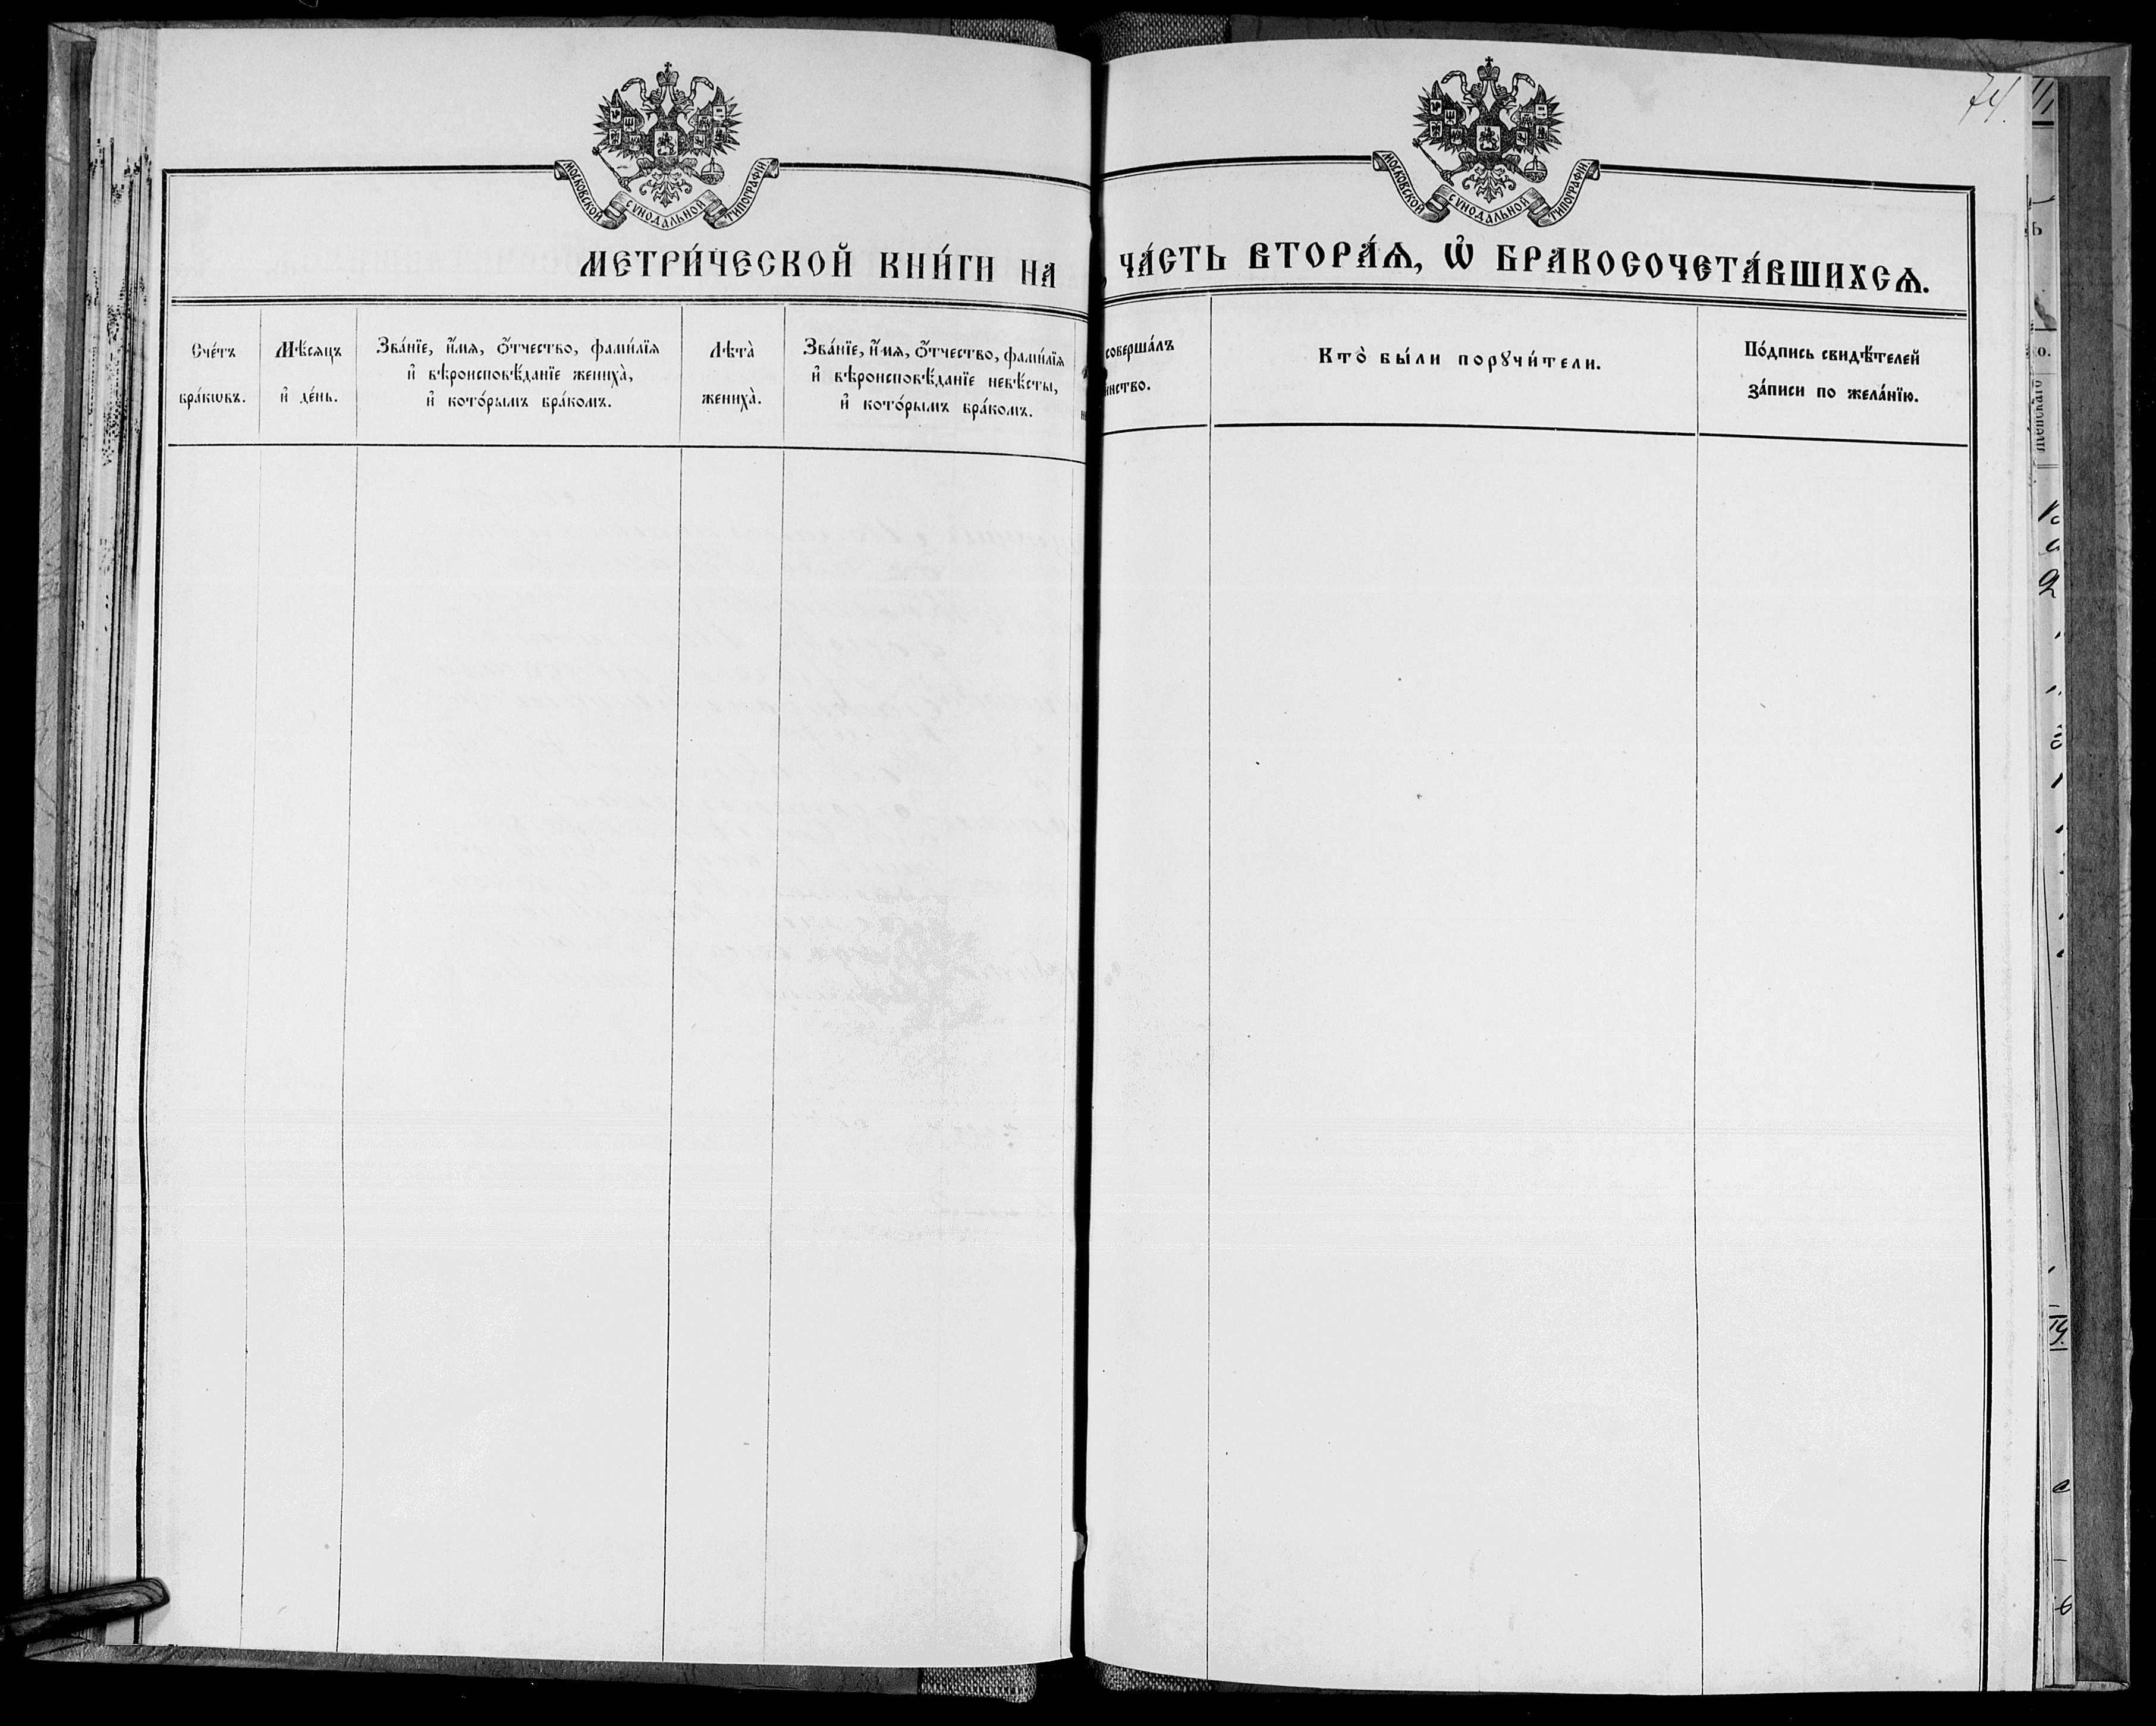 МОСКОВСКОЙ СУНОДАЛЬНОЙ ТИПОГРАФІИ.
МЕТРИ́ЧЕСКОЙ КНИ́ГИ НА
Сче́тъ
бра́кωвъ.
Мѣ́сяцъ
и҆ де́нь.
Зва́нїе, и҆́мя, ѻ҆́тчество, фами́лїя
и҆ вѣроисповѣ́данїе жениха̀,
и҆ кото́рымъ бра́комъ.
Лѣта̀
жениха̀.
Зва́нїе, и҆́мя, ѻ҆́тчество, фами́лїя
и҆ вѣроисповѣ́данїе невѣ́сты,
и҆ кото́рымъ бра́комъ.
74.
МОСКОВСКОЙ СУНОДАЛЬНОЙ ТИПОГРАФІИ.
ЧА́СТЬ ВТОРА́Ѧ, Ѡ҆ БРАКОСОЧЕТА́ВШИХСѦ.
соверша́лъ
инство.
Кто̀ бы́ли порꙋчи́тели.
По́дпись свидѣ́телей
за́писи по жела́нїю.